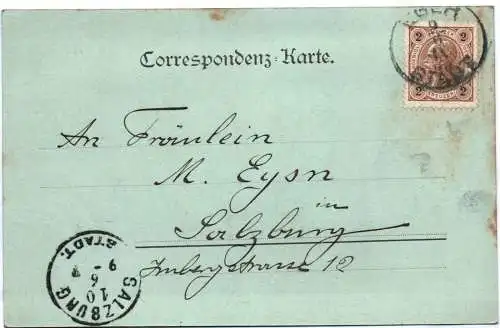 Correspondenz-Karte.
2 2
STADT
An Fräulein
M. Eysn
in
Salzburg
12
SALZBURG
STADT.
10
6
9-